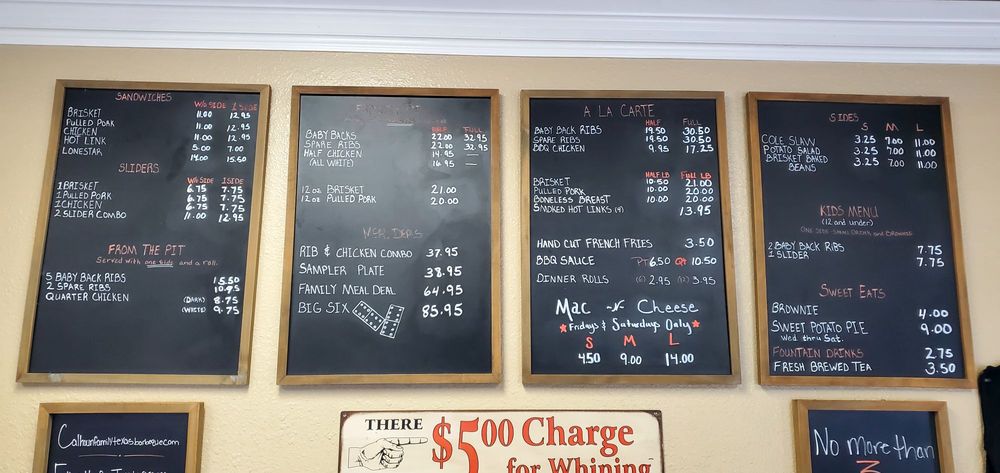 SANDWICHES
W/O SIDE 1 SIDE
BRISKET 11.00 12.95
PULLED PORK 11.00 12.95
CHICKEN 11.00 12.95
HOT LINK 5.00 7.00
LONESTAR 14.00 15.50
SLIDERS
W/O SIDE 1 SIDE
1 BRISKET 6.75 7.75
1 PULLED PORK 6.75 7.75
1 CHICKEN 6.75 7.75
2 SLIDER COMBO 11.00 12.95
FROM THE PIT
Served with one side and a roll.
5 BABY BACK RIBS 15.50
2 SPARE RIBS 10.95
QUARTER CHICKEN (DARK) 8.75
(WHITE) 9.75
HALF FULL
BABY BACKS 22.00 32.95
SPARE RIBS 22.00 32.95
HALF CHICKEN 14.95 —
(ALL WHITE) 16.95 —
12 oz BRISKET 21.00
12 oz PULLED PORK 20.00
DEALS
RIB & CHICKEN COMBO 37.95
SAMPLER PLATE 38.95
FAMILY MEAL DEAL 64.95
BIG SIX 85.95
A LA CARTE
HALF FULL
BABY BACK RIBS 19.50 30.50
SPARE RIBS 19.50 30.50
BBQ CHICKEN 9.95 17.25
HALF LB FULL LB
BRISKET 10.50 21.00
PULLED PORK 10.00 20.00
BONELESS BREAST 10.00 20.00
SMOKED HOT LINKS (4) 13.95
HAND CUT FRENCH FRIES 3.50
BBQ SAUCE PT 6.50 QT 10.50
DINNER ROLLS (6) 2.95 (12) 3.95
Mac -n- Cheese
*Fridays & Saturdays Only*
S M L
4.50 9.00 14.00
SIDES
S M L
COLE SLAW 3.25 7.00 11.00
POTATO SALAD 3.25 7.00 11.00
BRISKET BAKED 3.25 7.00 11.00
BEANS
KIDS MENU
(12 and under)
ONE SIDE-SMALL DRINK and BROWNIE
2 BABY BACK RIBS 7.75
1 SLIDER 7.75
SWEET EATS
BROWNIE 4.00
SWEET POTATO PIE 9.00
Wed thru Sat.
FOUNTAIN DRINKS 2.75
FRESH BREWED TEA 3.50
Calhounfamilytexasbarbeque.com
THERE
$5.00 Charge
for Whining
No more than
3